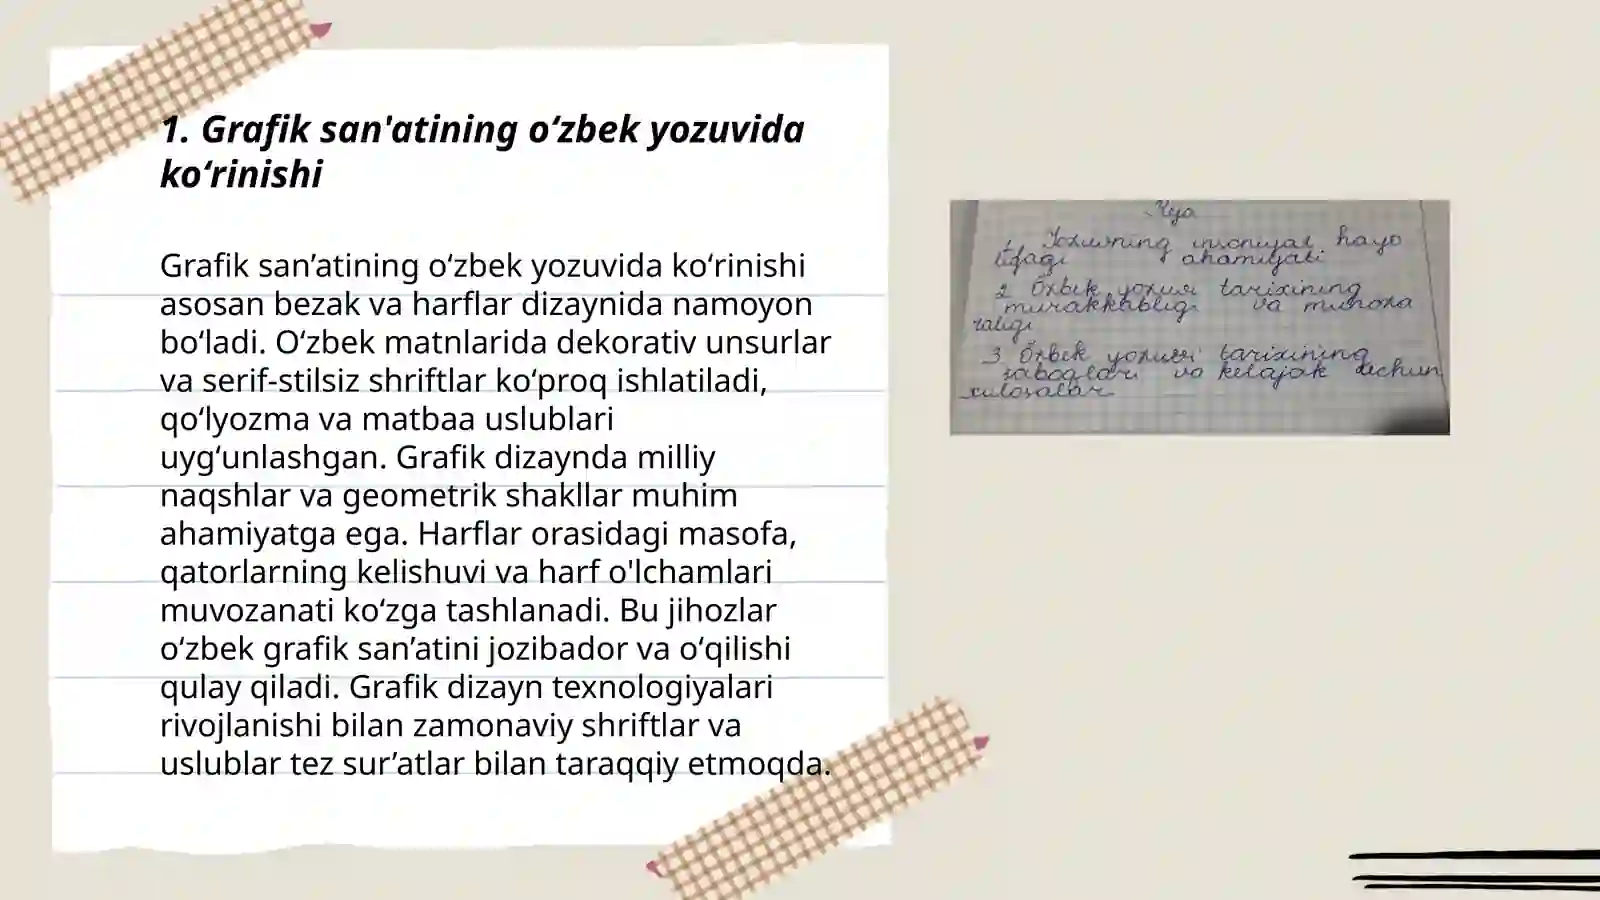 1. Grafik san'atining oʻzbek yozuvida
koʻrinishi
Grafik san’atining oʻzbek yozuvida koʻrinishi
asosan bezak va harflar dizaynida namoyon
boʻladi. Oʻzbek matnlarida dekorativ unsurlar
va serif-stilsiz shriftlar koʻproq ishlatiladi,
qoʻlyozma va matbaa uslublari
uygʻunlashgan. Grafik dizaynda milliy
naqshlar va geometrik shakllar muhim
ahamiyatga ega. Harflar orasidagi masofa,
qatorlarning kelishuvi va harf o'lchamlari
muvozanati koʻzga tashlanadi. Bu jihozlar
oʻzbek grafik san’atini jozibador va oʻqilishi
qulay qiladi. Grafik dizayn texnologiyalari
rivojlanishi bilan zamonaviy shriftlar va
uslublar tez sur’atlar bilan taraqqiy etmoqda.
1. Yozuvning insoniyat hayo
tidagi ahamiyati
2 Özbek yozuvi tarixining
murakkabligi va munoza
raligi
3 Özbek yozuvi tarixining
saboqlari va kelajak uchun
xulosalar